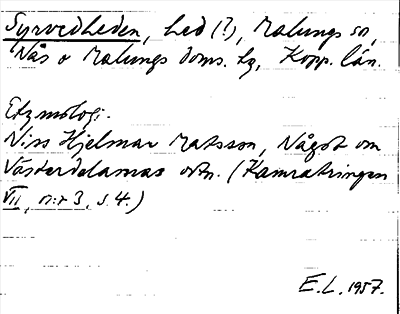 Syrvedheden, hed (?), Malungs sn,
Nås o Malungs doms. tg, Kopp. län.
Etymologi.
Niss Hjelmar Matsson, Något om
Västerdalarnas ortn. (Kamratringen
VII, n:r 3, s. 4.)
E.L. 1957.